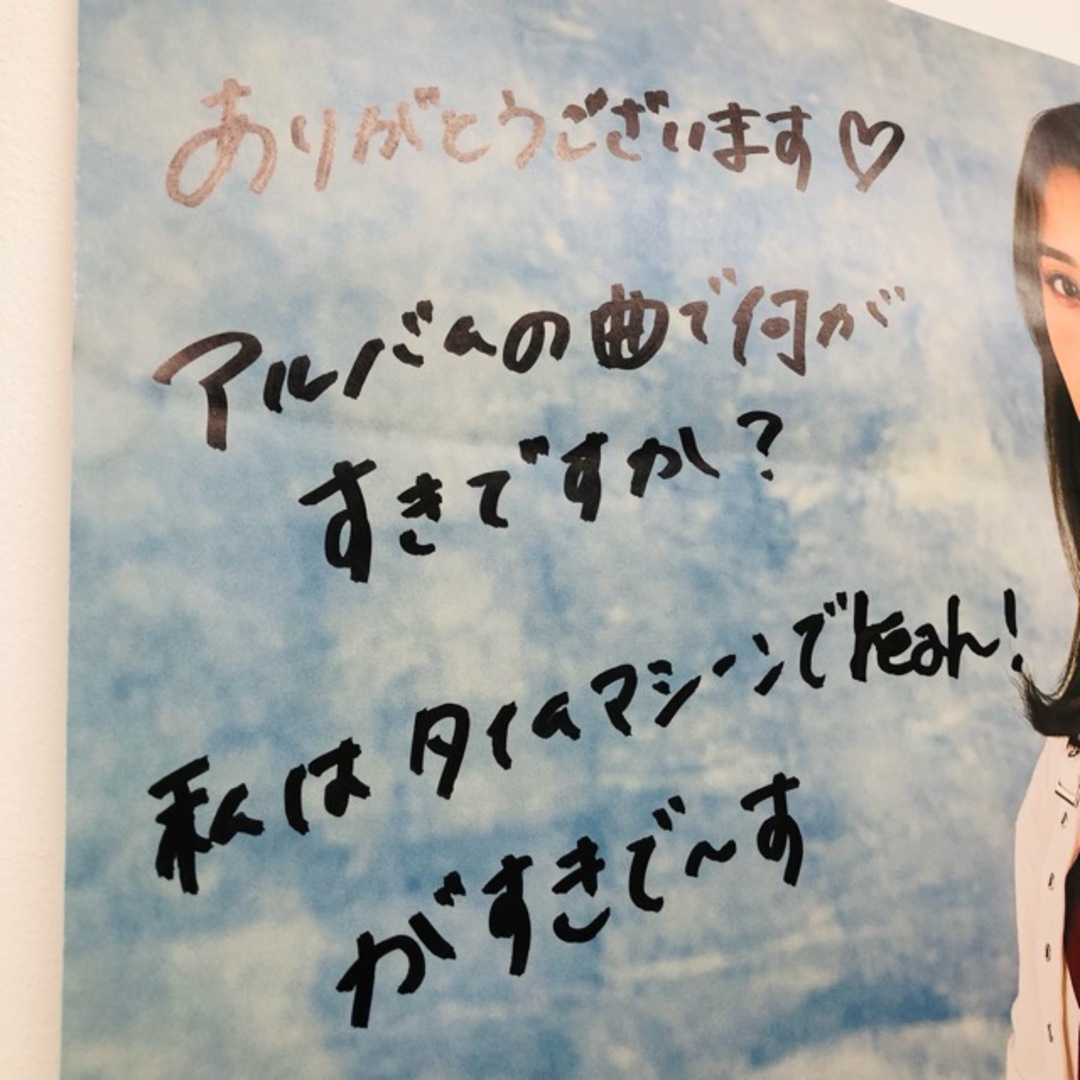 ありがとうございます♡
アルバムの曲で何が
すきですか?
私はタイムマシーンでYeah!
がすきで〜す